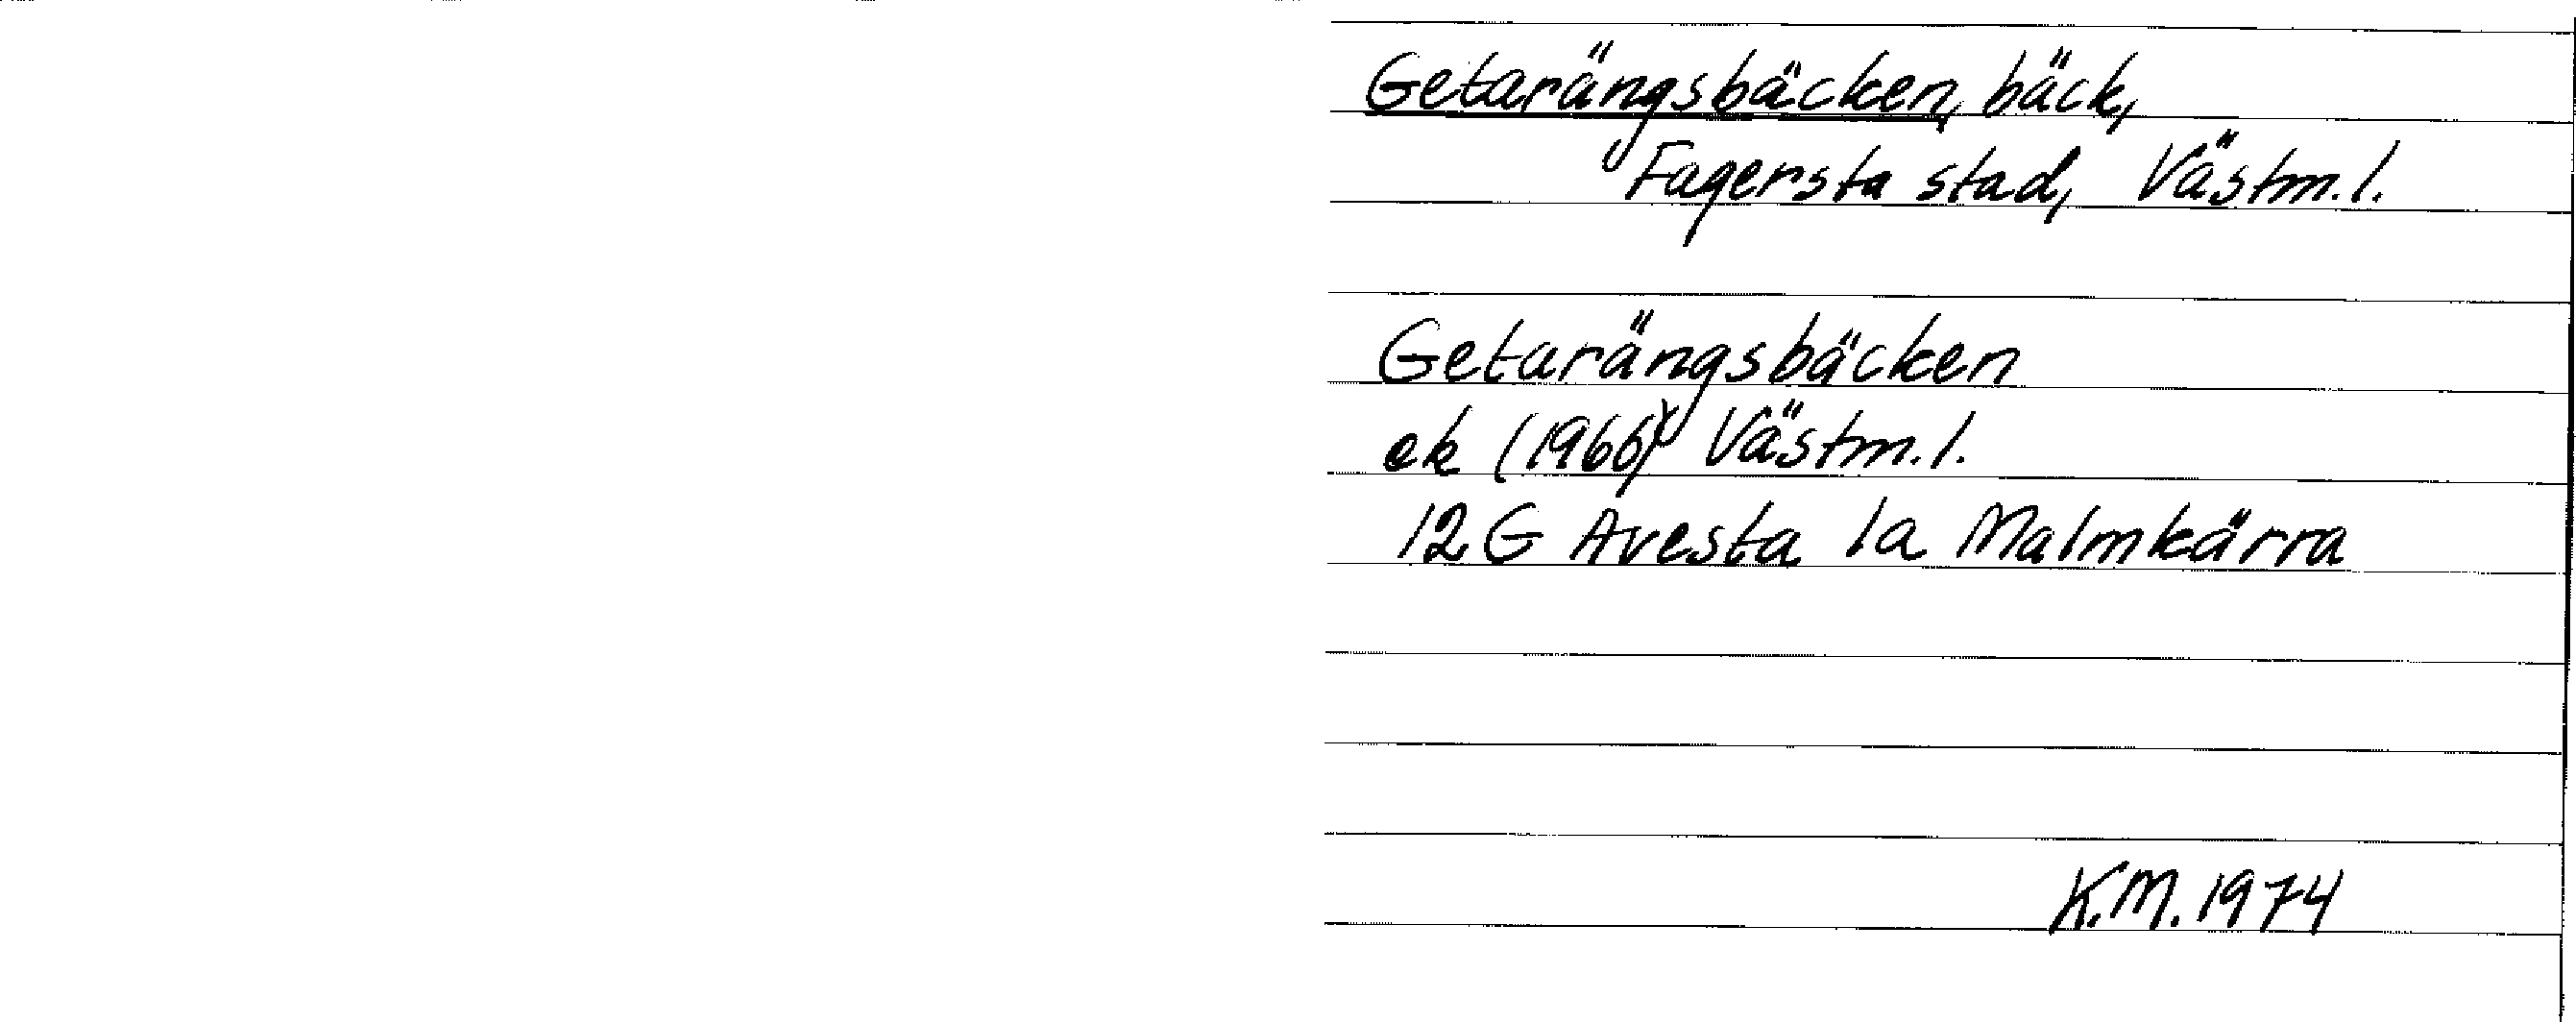 Getarängsbäcken, bäck,
Fagersta stad, Västm.l.
Getarängsbäcken
ek (1966) Västm.l.
12 G Avesta 1a Malmkärra
K.M. 1974